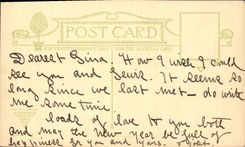 POST CARD
FOR CORRESPONDENCE
FOR THE ADDRESS ONLY
Dearest Gina. How I wish I could
see you and Seurs. It seems so
long since we last met — do write
me some time
loads of love to you both
and may the New Year be full of
happiness for you and yours.